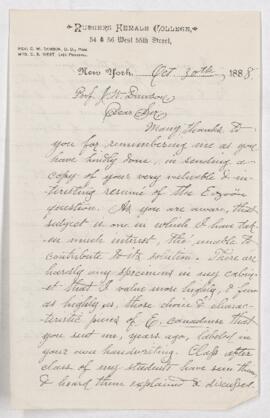 RUTGERS FEMALE COLLEGE,
54 & 56 West 55th Street,
REV. G. W. SAMSON, D. D., Pres.
MRS. C. E. WEST, Lady Principal.
New York, Oct 30th 1888.
Prof. J. W. Dawson
Dear Sir
Many thanks to
you for remembering me as you
have kindly done, in sending a
copy of your very valuable & in-
teresting resume of the Eozoon
question. As you are aware, that
subject is one in which I have tak-
en much interest, tho' unable to
contribute to its solution. There are
hardly any specimens in my cabi-
net that I value more highly, & few
as highly as, those choice & charac-
teristic pieces of E. canadense that
you sent me, years ago, labeled in
your own handwriting. Class after
class of my students have seen them
& heard them explained & discussed.